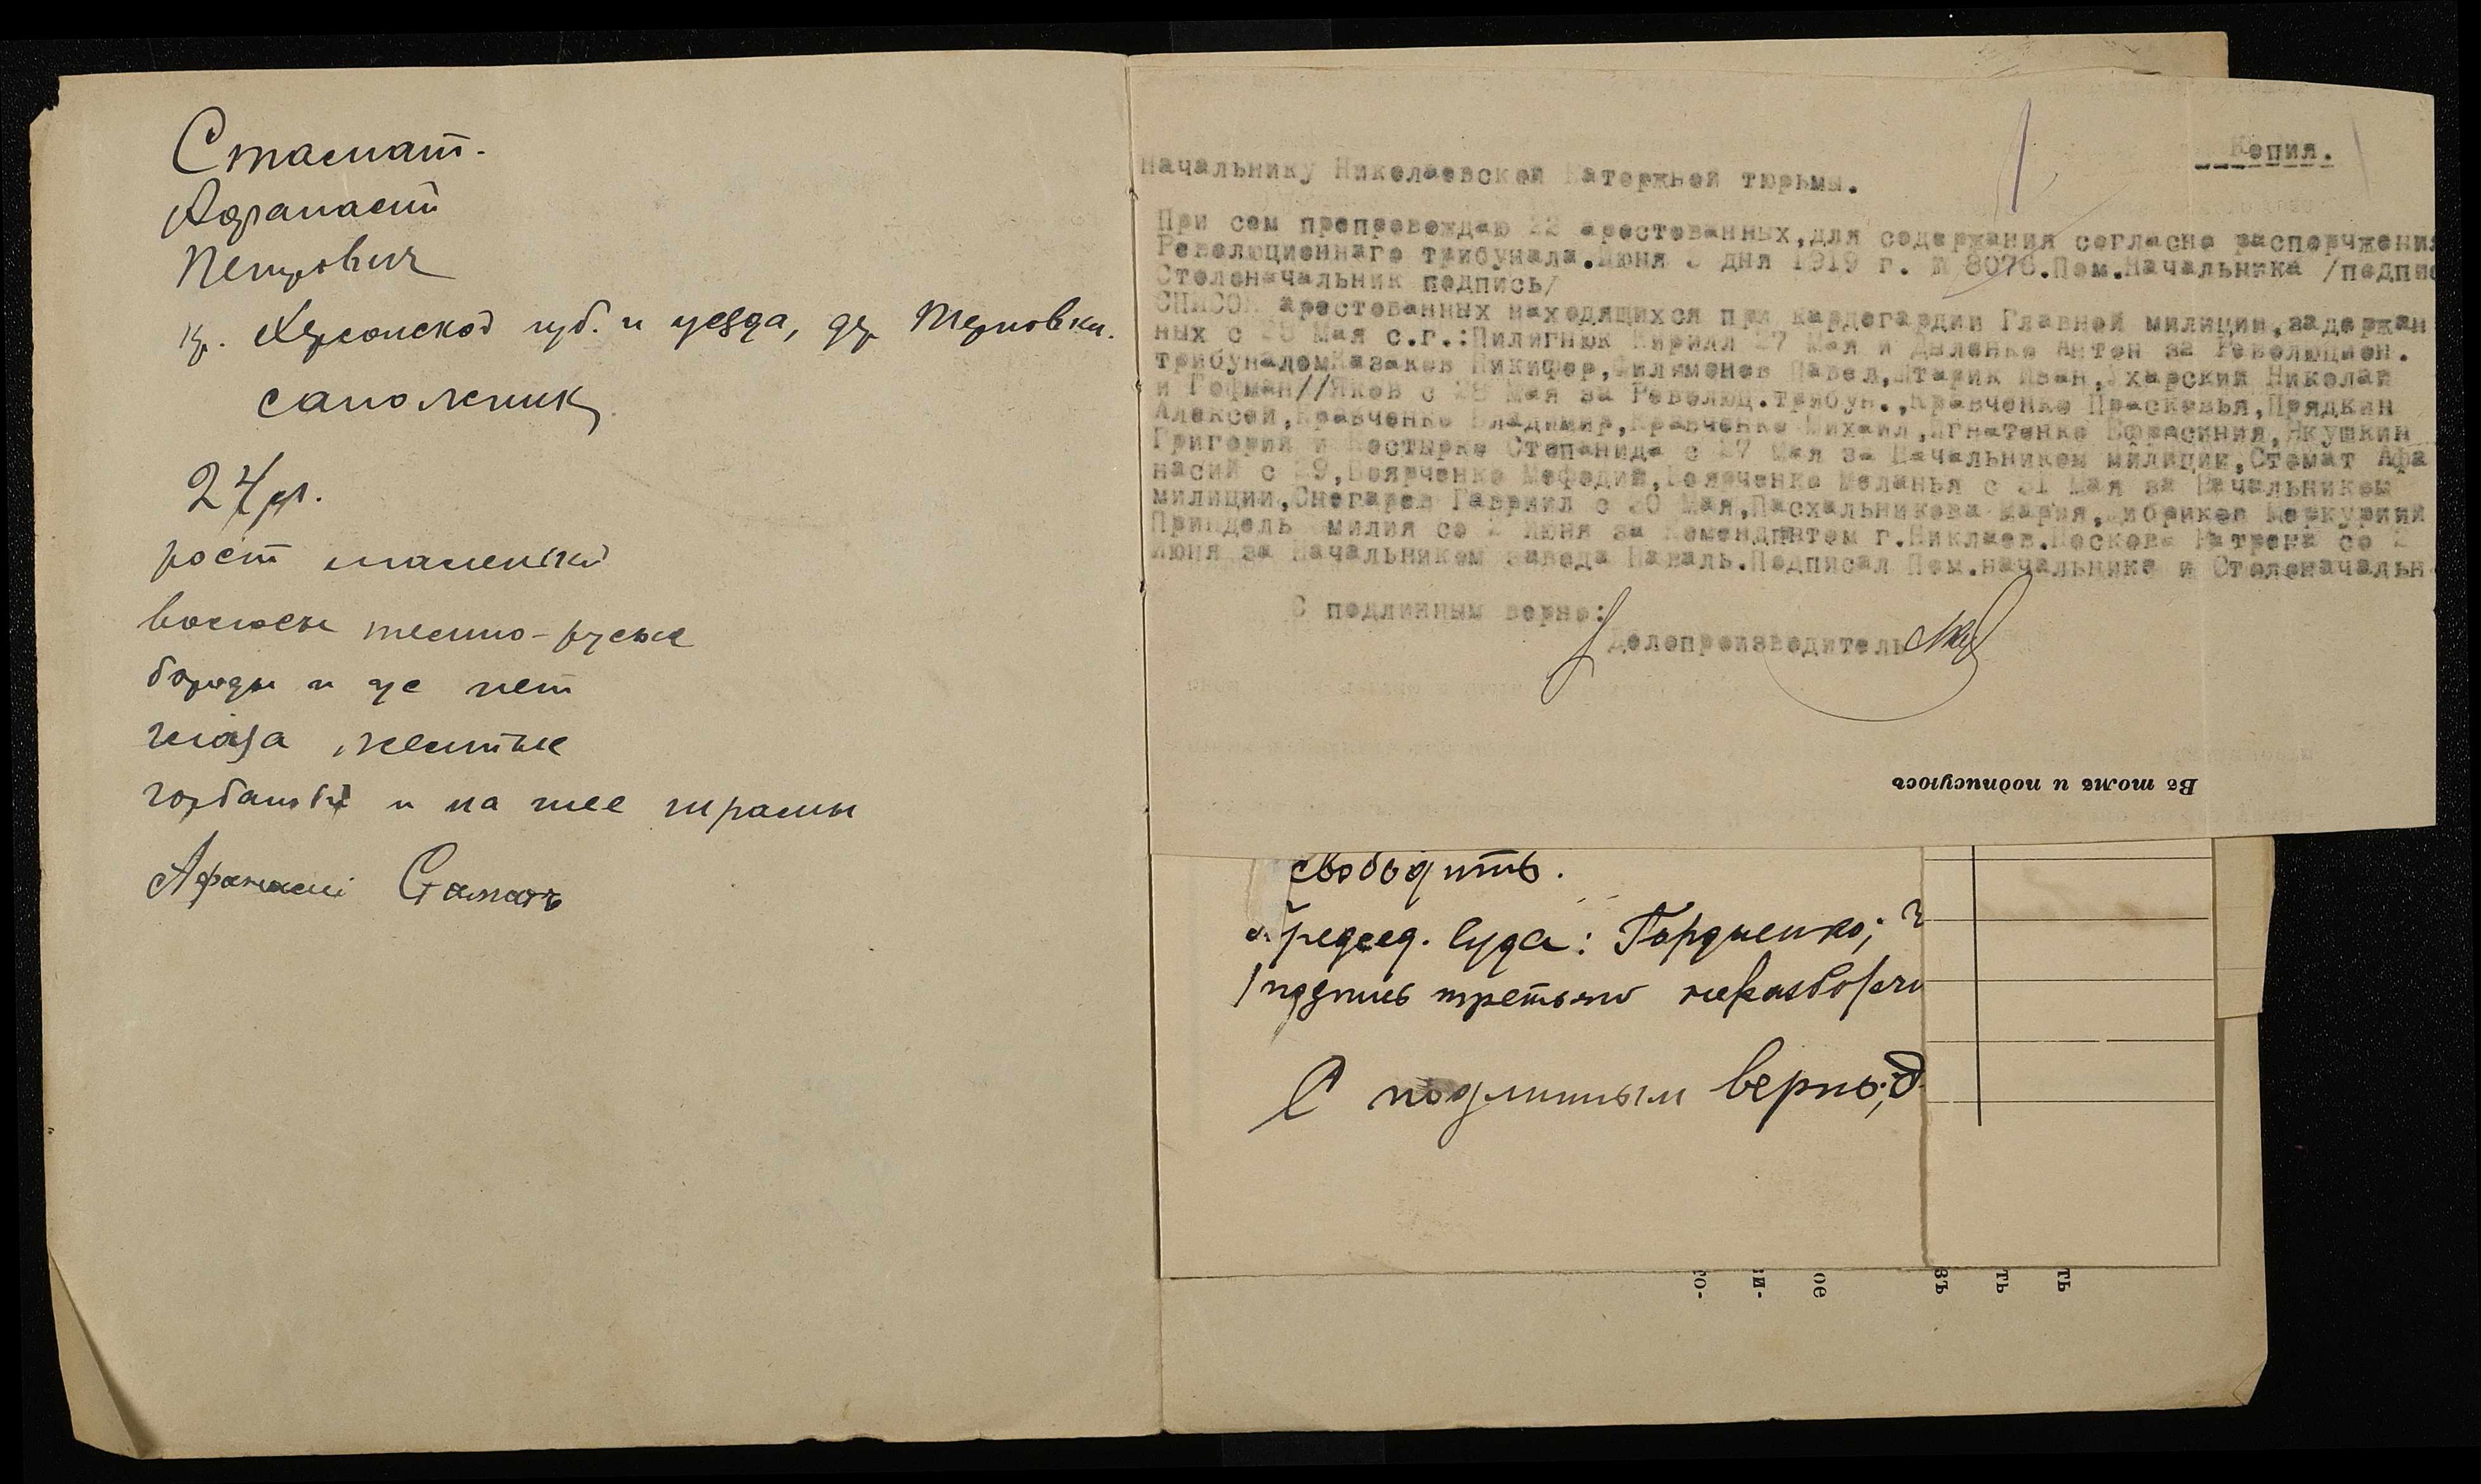 Стамат.
Афанасий
Петрович
кр. Херсонской губ. и уезда, дер Терновки.
сапожник
24 л.
рост маленький
волосы темно-русые
бороды и ус нет
глаза желтые
горбатый и на шее шрамы
Афанасий Саматъ
Копия.
Начальнику Николаевской Каторжной тюрьмы.
При сем препровождаю 22 арестованных,для содержания согласно распорчжения
Революционнаго трибунала.Июня 3 дня 1919 г. № 8076.Пом.Начальника /подпис
Столоначальник подпись/
СПИСОК арестованных находящихся при кардегардии Главной милиции,задержан
ных с 25 Мая с.г.:Пилигнюк Кирилл 27 Мая и Дыленко Антон за Революцион.
трибуналомКазаков Никифор,Филимонов Павел,Штарик Иван,Ухарский Николай
и Гофман//Яков с 28 Мая за Револющ.трибун.,Кравченко Прасковья,Прядкин
Алексей,Кравченко Владимир,Кравченко Михаил,Игнатенко Ефросиния,Якушкин
Григорий и Костырко Степанида с 27 Мая за Начальником милиции,Стомат Афа
насий с 29,Боярченко Мефодий,Боярченко Меланья с 31 Мая за Начальником
милиции,Снегарев Гавриил с 30 Мая,Пасхальникова Мария,Дибриков Меркурий
Приндель милия со 2 Июня за Комендантом г.Никлаев.Носкова Матрена со 2
Июня за Начальником завода Наваль.Подписал Пом.начальнике и Столоначальн
С подлинным верно:
Делопроизводитель
Въ томъ и подписуюсь
свободить.
Председ. Суда: Гордиенко;
/подпись третьяго неразборчи
С подлинным верно:
го-
си-
ое
въ
ть
ть